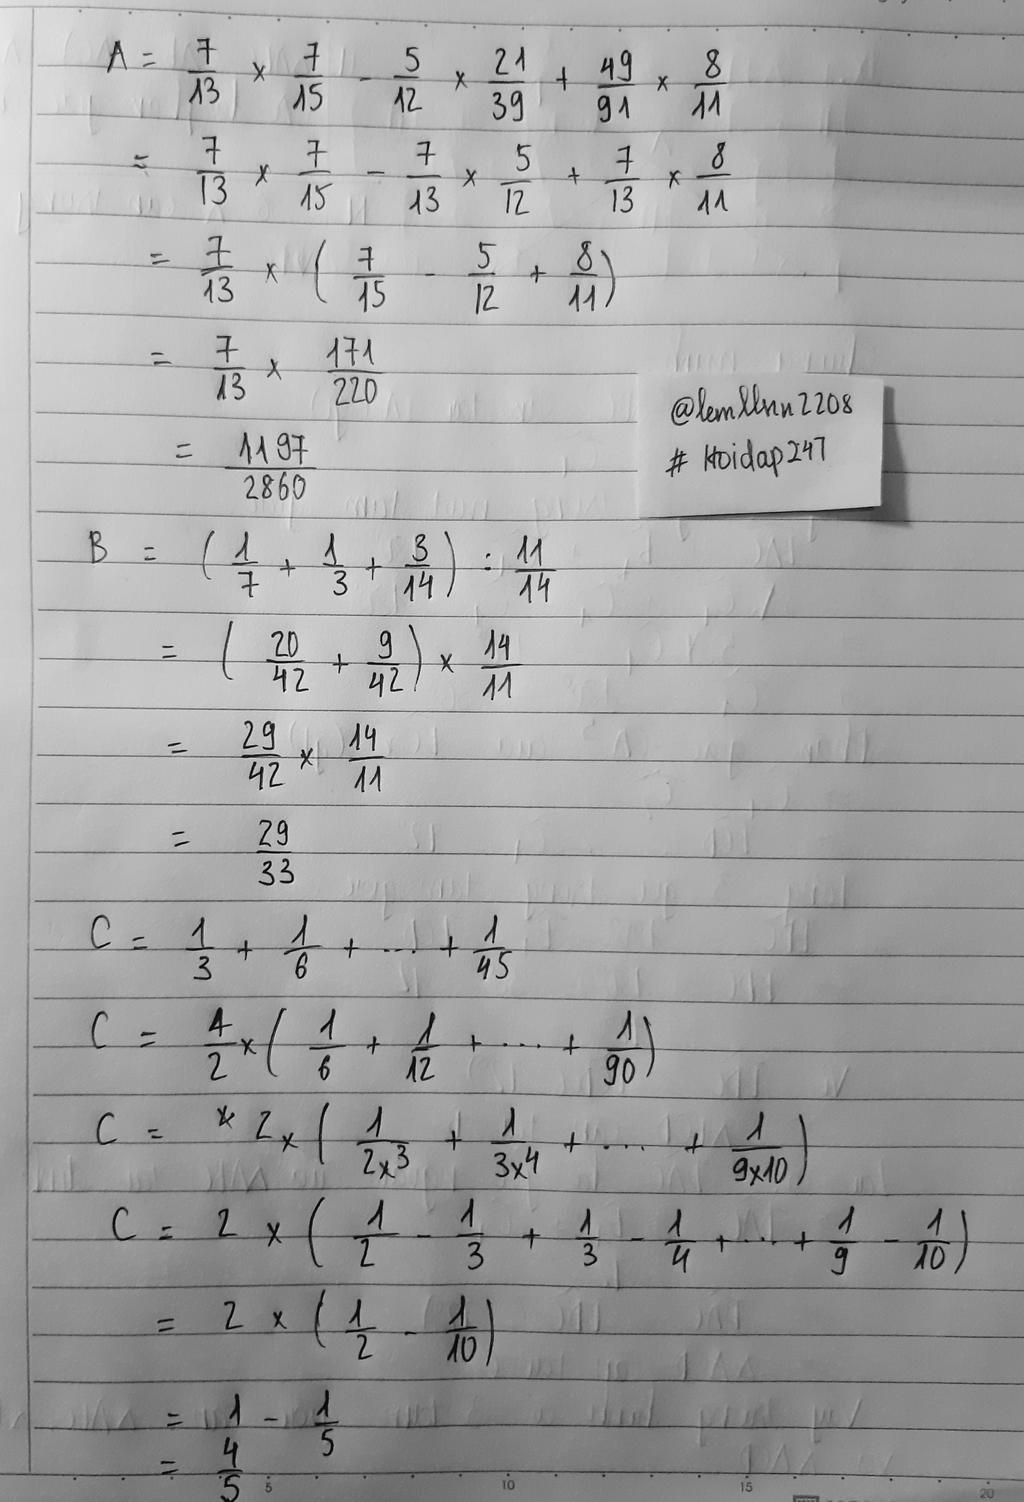 A = 7/13 × 7/15 - 5/12 × 21/39 + 49/91 × 8/11
= 7/13 × 7/15 - 7/13 × 5/12 + 7/13 × 8/11
= 7/13 × ( 7/15 - 5/12 + 8/11 )
= 7/13 × 171/220
@lemllnn2208
= 1197/2860
# Hoidap247
B = ( 1/7 + 1/3 + 3/14 ) : 11/14
= ( 20/42 + 9/42 ) × 14/11
= 29/42 × 14/11
= 29/33
C = 1/3 + 1/6 + ... + 1/45
C = 1/2 × ( 1/6 + 1/12 + ... + 1/90 )
C = × 2 × ( 1/2×3 + 1/3×4 + ... + 1/9×10 )
C = 2 × ( 1/2 - 1/3 + 1/3 - 1/4 + ... + 1/9 - 1/10 )
= 2 × ( 1/2 - 1/10 )
= 1 - 1/5
= 4/5
5 10 15 20